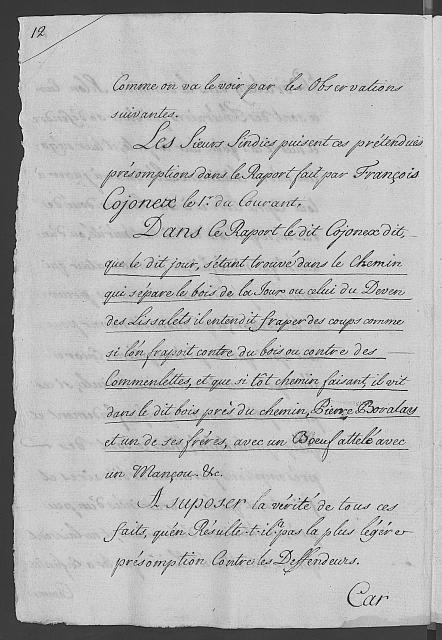 12
Comme on va le voir par les Observations
suivantes.
Les Sieurs Sindics puisent ces prétendües
présomptions dans le Raport fait par François
Cojonex le 1.r du Courant.
Dans le Raport le dit Cojonex dit,
que le dit jour, s'étant trouvé dans le Chemin
qui sépare le bois de la Jour ou celui du Deven
des Lissalets il entendit fraper des coups comme
si l'on frapoit contre du bois ou contre des
Commenlettes, et que si tôt chemin faisant, il vit
dans le dit bois, près du chemin, Pierre
et un de ses fréres, avec un Boeuf attelé avec
un Mançou. &c.
A suposer la vérité de tous ces
faits, qu'en Résulte-t-il? pas la plus légére
présomption Contre les Deffendeurs.
Car